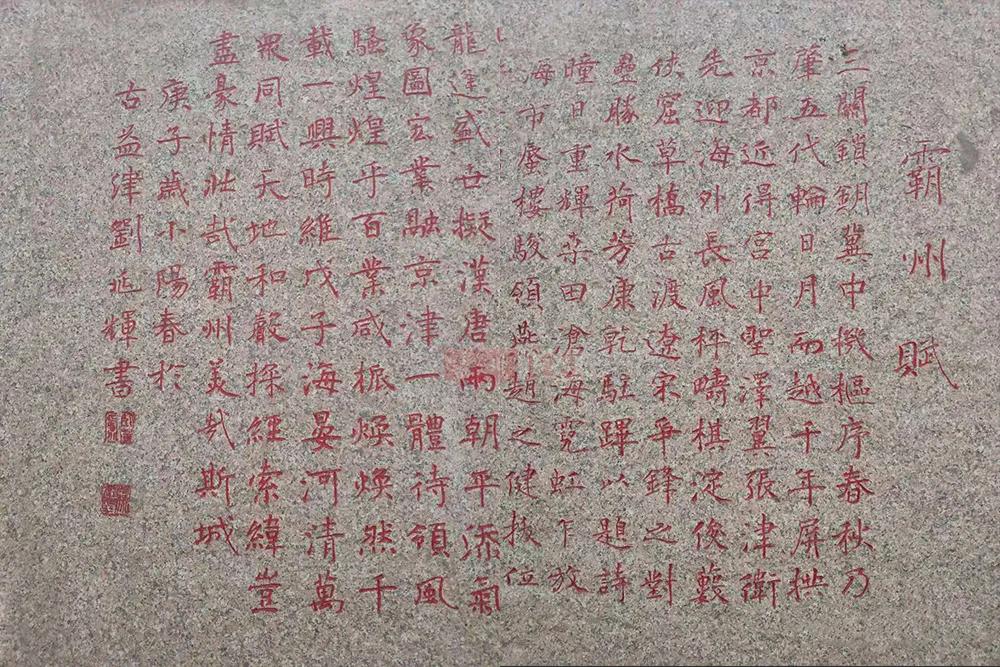 霸州賦
三關鎖鑰冀中機樞序春秋乃
肇五代輪日月而越千年屏拱
京都近得宮中聖澤翼張津衛
先迎海外長風枰疇棋淀後藪
俠窟草橋古渡遼宋爭鋒之對
壘勝水荷芳康乾駐蹕以題詩
曈日重輝桑田滄海霓虹乍放
海市蜃樓駿領燕趙之健拔位
龍逢盛世擬漢唐兩朝平添氣
象圖宏業融京津一體待領風
騷煌煌乎百業咸振煥煥然千
載一興時維戊子海晏河清萬
衆同賦天地和聲採經索緯豈
盡豪情壯哉霸州美哉斯城
庚子歲小陽春於
古益津劉延輝書